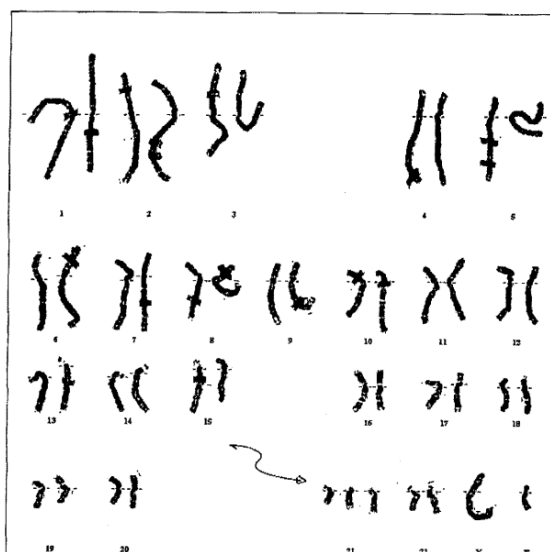 1 2 3 4 5
6 7 8 9 10 11 12
13 14 15 16 17 18
19 20 21